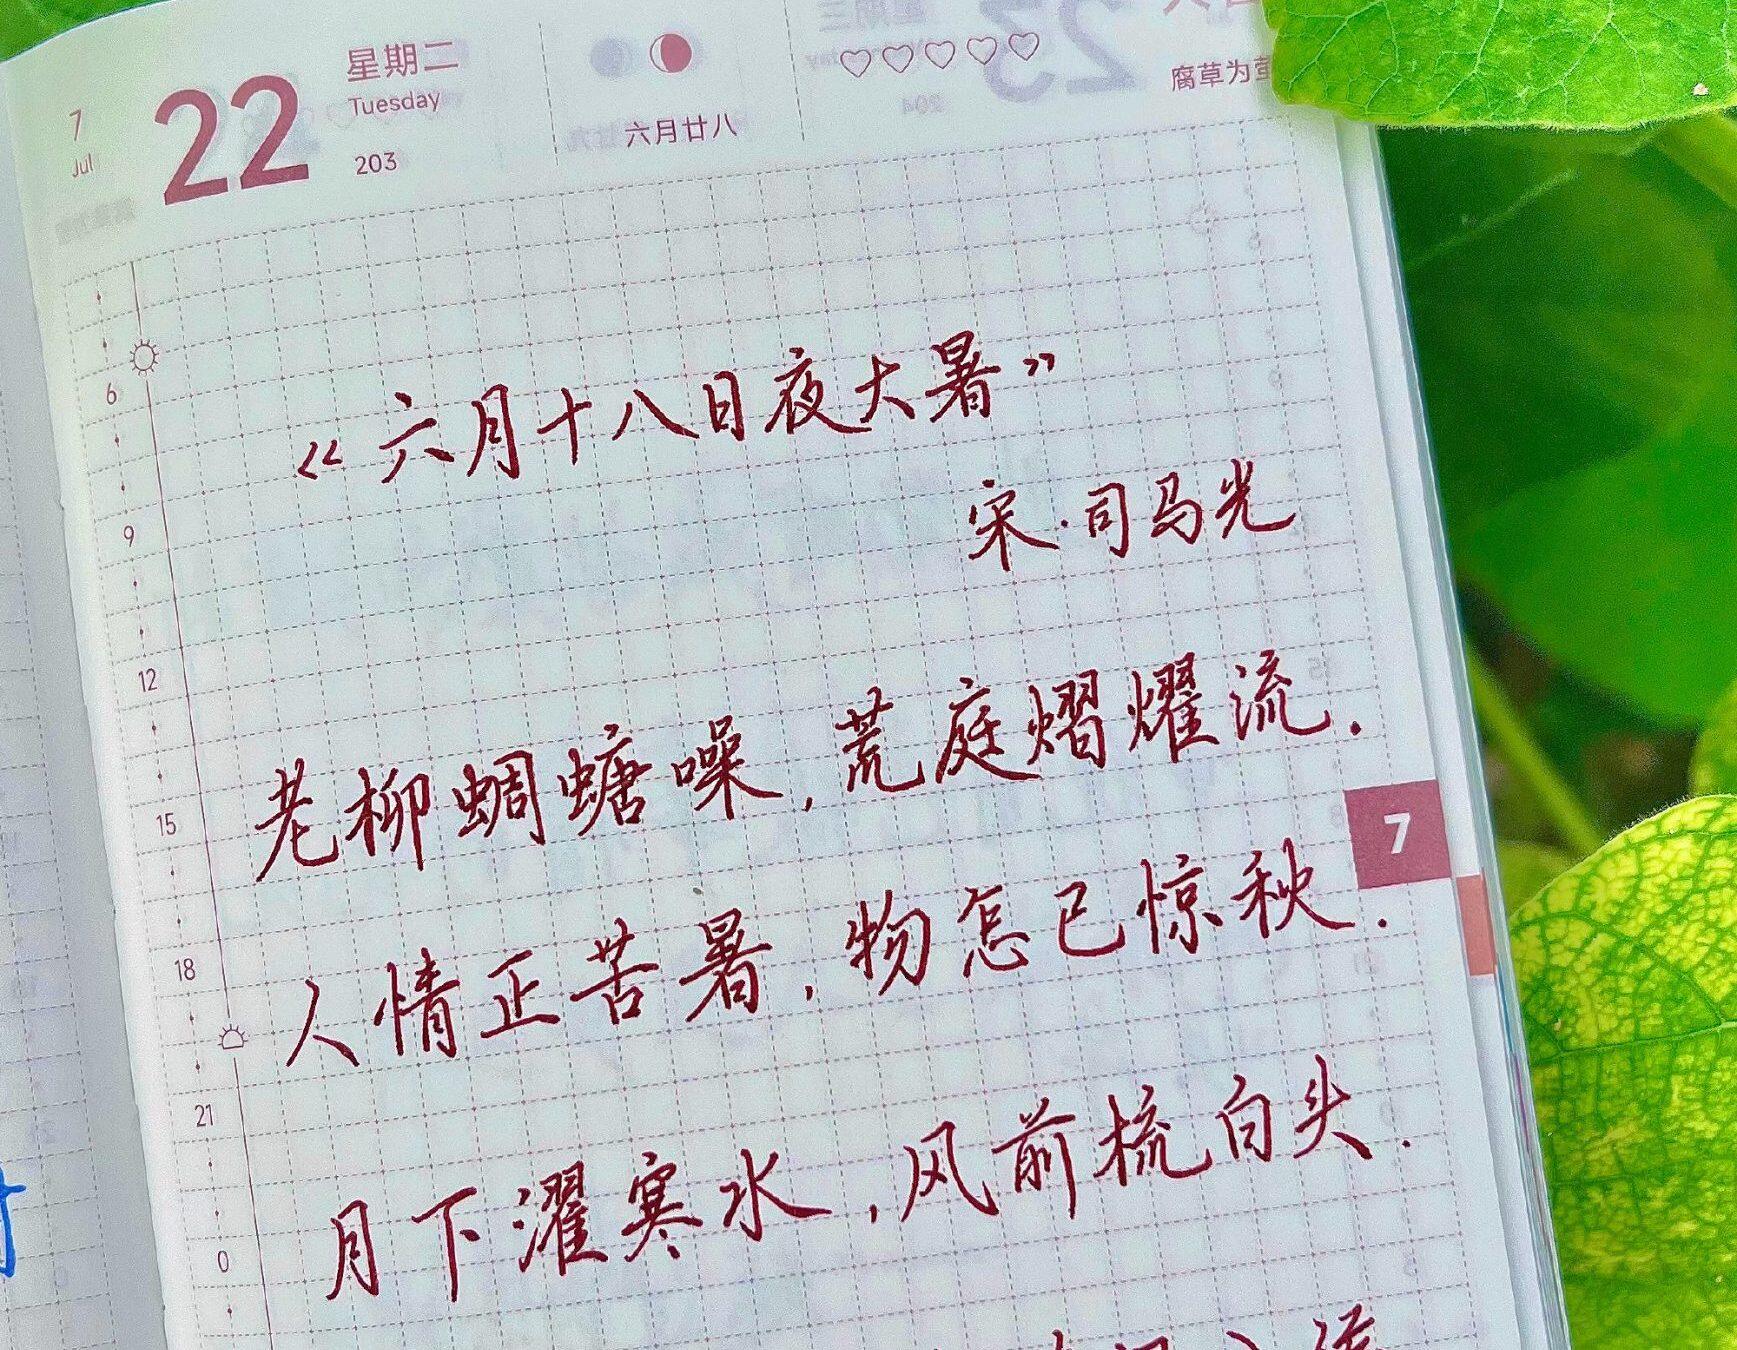 7
Jul
22
星期二
Tuesday
203
六月廿八
腐草为
6
9
12
15
18
21
0
7
《六月十八日夜大暑》
宋·司马光
老柳蜩螗噪,荒庭熠燿流.
人情正苦暑,物怎已惊秋.
月下濯寒水,风前梳白头.